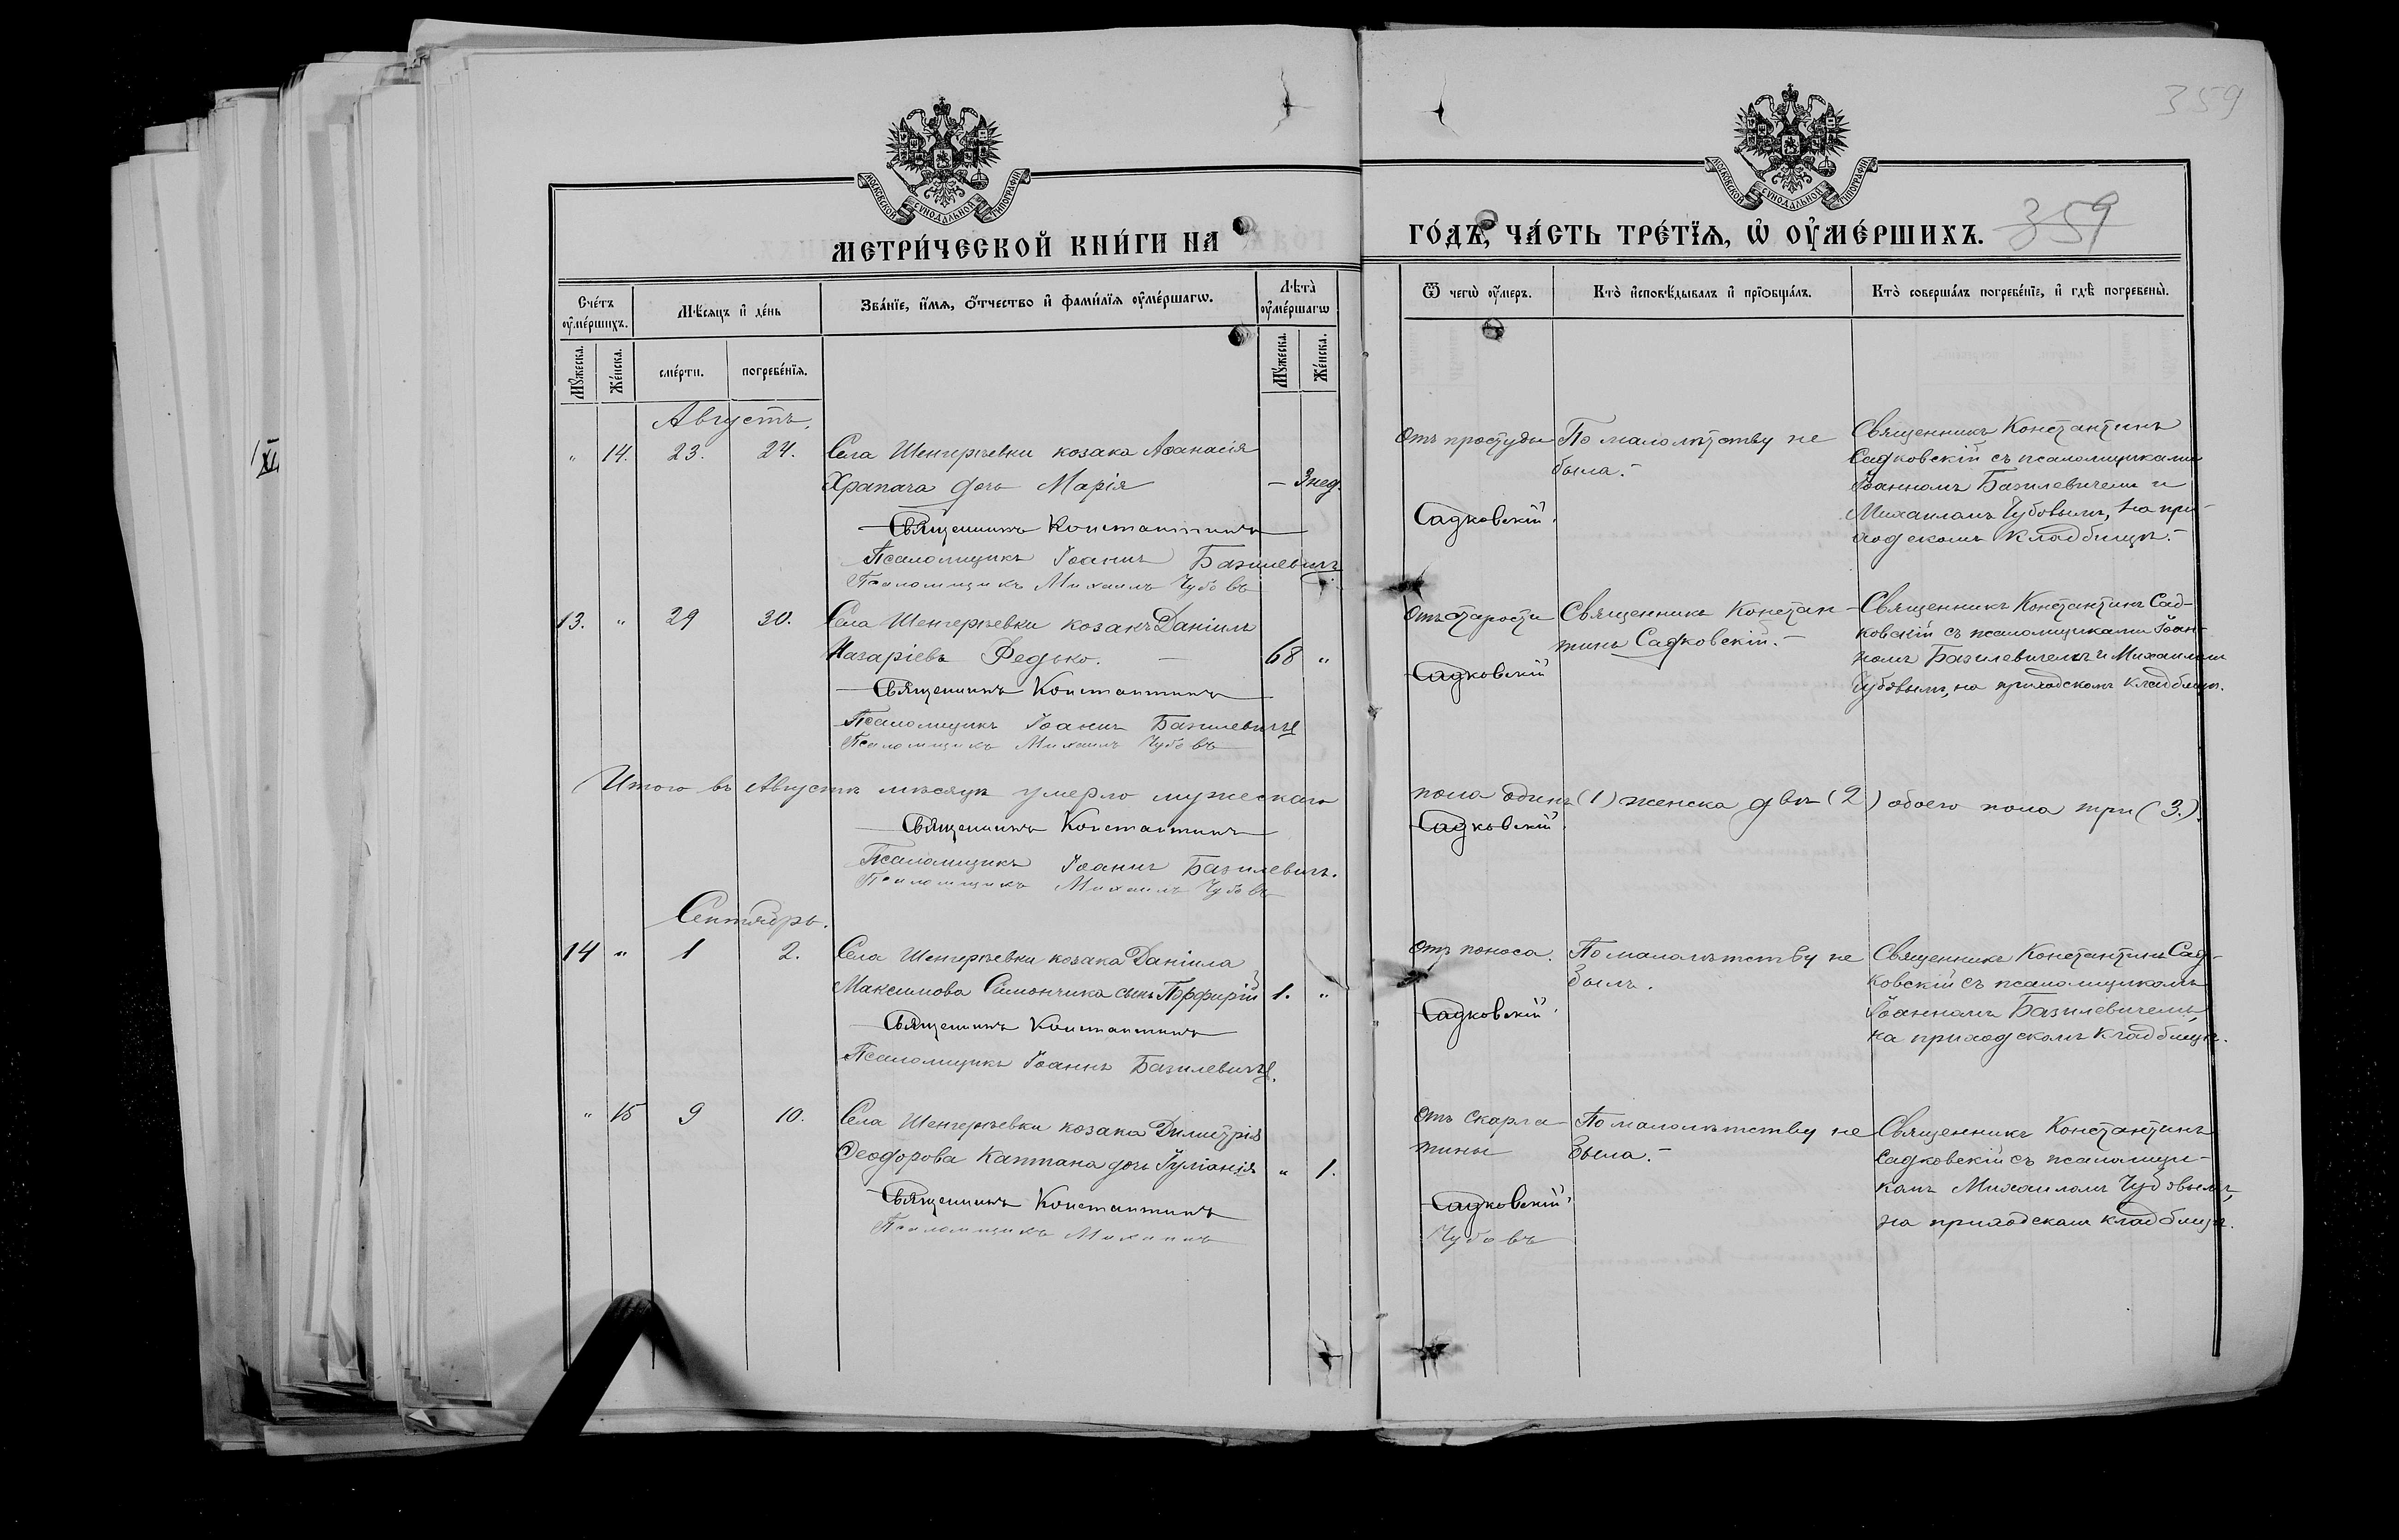 359
МОСКОВСКОЙ СѴНОДАЛЬНОЙ ТИПОГРАФІИ
МОСКОВСКОЙ СѴНОДАЛЬНОЙ ТИПОГРАФІИ
МЕТРИ́ЧЕСКОЙ КНИ́ГИ НА
ГО́ДЪ, ЧА́СТЬ ТРЕ́ТЇѦ, Ѡ҆ ОУ҆МЕ́РШИХЪ. 359
Сче́тъ оу҆ме́ршихъ.
Мѣ́сяцъ и҆ де́нь
Зва́нїе, и҆́мѧ, ѻ҆́тчество и҆ фами́лїѧ оу҆ме́ршагѡ.
Лѣ́та оу҆ме́ршагѡ
Ѿ чегѡ̀ оу҆́меръ.
Кто̀ и҆сповѣ́дывалъ и҆ прїѡбща́лъ.
Кто̀ соверша́лъ погребе́нїе, и҆ гдѣ̀ погребены̀.
Мꙋ́жеска.
Же́нска.
сме́рти.
погребе́нїѧ.
Мꙋ́жеска.
Же́нска.
Августъ.
" 14. 23. 24. Села Шенгерѣевки козака Аѳанасія
Храпача дочь Марія — 3 нед.
Священникъ Константинъ
Псаломщикъ Іоаннъ Базилевичъ
Псаломщикъ Михаилъ Чубовъ
Отъ простуды
Садковскій.
По малолѣтству не
была.-
Священникъ Константинъ
Садковскій съ псаломщиками
Іоанномъ Базилевичемъ и
Михаиломъ Чубовымъ, на при-
ходскомъ кладбищѣ.-
13. " 29 30. Села Шенгерѣевки козакъ Даніилъ
Назаріевъ Федько. — 68 "
Священникъ Константинъ
Псаломщикъ Іоаннъ Базилевичъ
Псаломщикъ Михаилъ Чубовъ
Отъ старости
Садковскій
Священникъ Констан-
тинъ Садковскій.-
Священникъ Константинъ Сад-
ковскій съ псаломщиками Іоан-
номъ Базилевичемъ и Михаиломъ
Чубовымъ, на приходскомъ кладбищѣ.
Итого въ Августѣ мѣсяцѣ умерло мужескаго
пола одинъ (1) женска двѣ (2) обоего пола три (3.).
Священникъ Константинъ
Садковскій.
Псаломщикъ Іоаннъ Базилевичъ.
Псаломщикъ Михаилъ Чубовъ
Сентябрь.
14 " 1 2. Села Шенгерѣевки козака Даніила
Максимова Симончика сынъ Порфирій 1. "
Священникъ Константинъ
Псаломщикъ Іоаннъ Базилевичъ.
Отъ поноса.
Садковскій
По малолѣтству не
былъ.
Священникъ Константинъ Сад-
ковскій съ псаломщикомъ
Іоанномъ Базилевичемъ,
на приходскомъ кладбищѣ.
" 15 9 10. Села Шенгерѣевки козака Димитрія
Ѳеодорова Каптана дочь Іуліанія " 1.
Священникъ Константинъ
Псаломщикъ Михаилъ
Отъ скарла-
тины
Садковскій
Чубовъ
По малолѣтству не
была.-
Священникъ Константинъ
Садковскій съ псаломщи-
комъ Михаиломъ Чубовымъ,
на приходскомъ кладбищѣ.